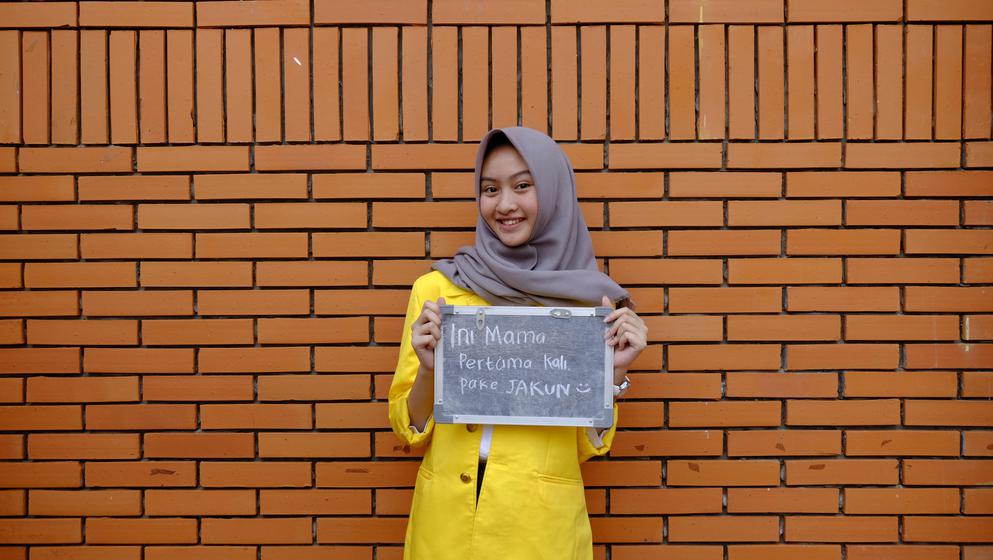 Ini Mama
Pertama kali
pake JAKUN